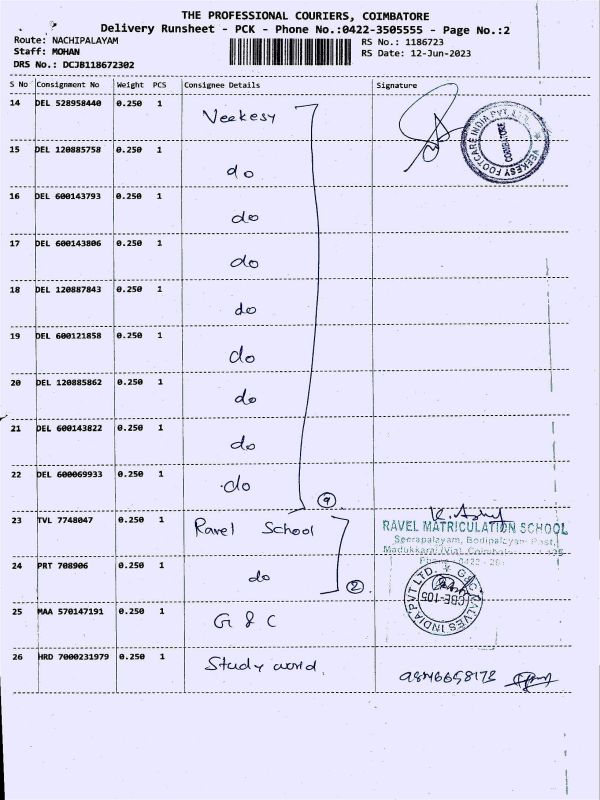 THE PROFESSIONAL COURIERS, COIMBATORE
Delivery Runsheet - PCK - Phone No.:0422-3505555 - Page No.:2
Route: NACHIPALAYAM RS No.: 1186723
Staff: MOHAN RS Date: 12-Jun-2023
DRS No.: DCJB118672302
S No Consignment No Weight PCS Consignee Details Signature
14 DEL 528958440 0.250 1 Veekesy
VEEKESY FOOTCARE INDIA PVT. LTD. COIMBATORE
15 DEL 120885758 0.250 1 do
16 DEL 600143793 0.250 1 do
17 DEL 600143806 0.250 1 do
18 DEL 120887843 0.250 1 do
19 DEL 600121858 0.250 1 do
20 DEL 120885862 0.250 1 do
21 DEL 600143822 0.250 1 do
22 DEL 600069933 0.250 1 do
9
23 TVL 7748047 0.250 1 Ravel School
RAVEL MATRICULATION SCHOOL
Seerapalayam, Bodipalayam Post,
Madukkarai (Via), Coimbatore
Phone: 0422 - 26
24 PRT 708906 0.250 1 do
2
25 MAA 570147191 0.250 1 G & C
G&C VALVES INDIA PVT LTD. CBE-105
26 HRD 7000231979 0.250 1 Study world